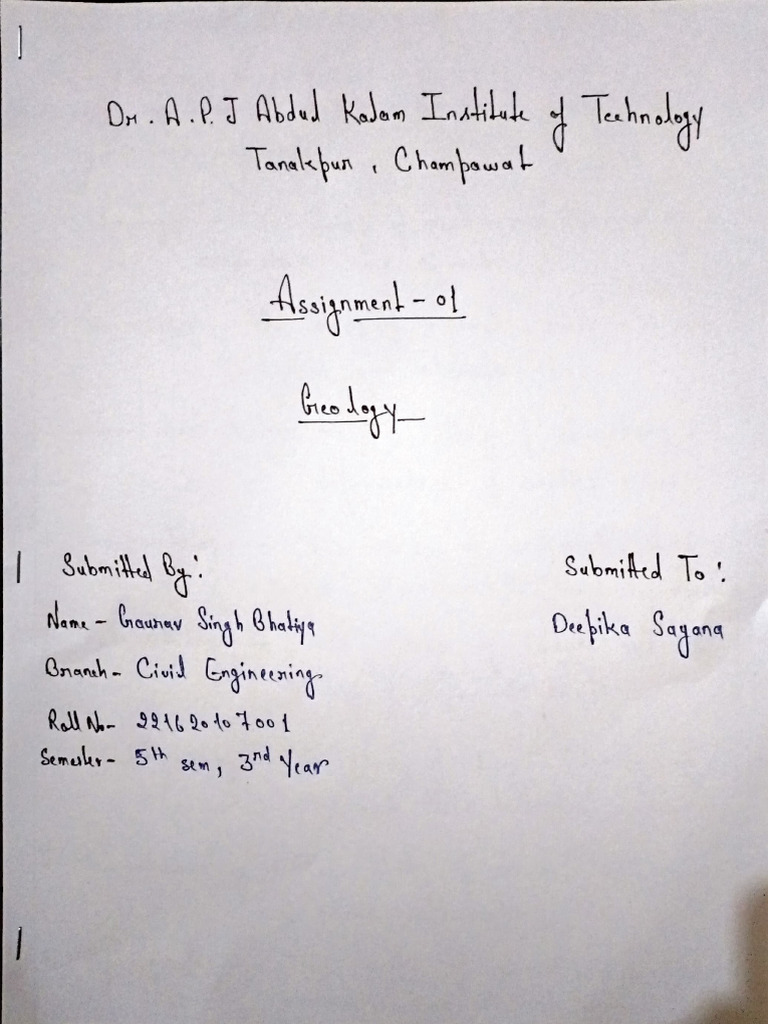 Dr. A.P.J Abdul Kalam Institute of Technology
Tanakpur, Champawat
Assignment - 01
Geology
Submitted By:
Name - Gaurav Singh Bhatiya
Branch - Civil Engineering
Roll No - 221620107001
Semester - 5th sem, 3rd Year
Submitted To:
Deepika Sayana